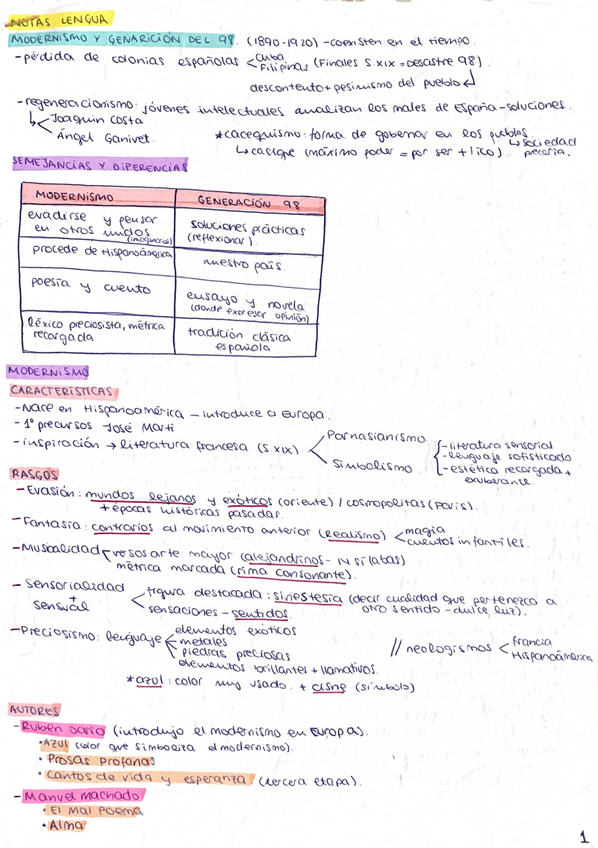 NOTAS LENGUA
MODERNISMO Y GENARICIÓN DEL 98. (1890-1920) - coexisten en el tiempo.
- pérdida de colonias españolas < Cuba
Filipinas (Finales S. XIX = Desastre 98)
descontento + pesimismo del pueblo ↲
- regeneracionismo: jóvenes intelectuales analizan los males de España - soluciones.
↳ < Joaquín Costa
Ángel Ganivet.
* cacequismo: forma de gobernar en los pueblos.
↳ cacique (máximo poder = por ser + rico)
↳ sociedad
SEMEJANCIAS Y DIFERENCIAS
MODERNISMO
GENERACIÓN 98
evadirse y pensar
en otros mundos
(imaginarios)
soluciones prácticas
(reflexionar).
procede de Hispanoámerica
nuestro país
poesía y cuento
ensayo y novela
(donde expresar opinión)
léxico preciosista, métrica
recargada
tradición clásica
española
MODERNISMO
CARACTERÍSTICAS
- Nace en Hispanoámerica - introduce a Europa.
- 1º precursos José Martí
- inspiración → literatura francesa (S. XIX) < Parnasianismo
Simbolismo
{ - literatura sensorial
- lenguaje sofisticado
- estética recargada +
exuberante
RASGOS
- Evasión: mundos lejanos y exóticos (oriente) / cosmopolitas (París).
+ épocas históricas pasadas.
- Fantasía: contrarios al movimiento anterior (Realismo) < magia
cuentos infantiles.
- Musicalidad < versos arte mayor (alejandrinos - 14 sílabas)
métrica marcada (rima consonante).
- Sensorialidad
+
sensual
< figura destacada: sinestesia (decir cualidad que pertenezca a
otro sentido - dulce luz).
sensaciones - sentidos
- Preciosismo: lenguaje < elementos exóticos
metales
piedras preciosas
elementos brillantes + llamativos.
// neologismos < francia
Hispanoámérica
* azul: color muy usado. + cisne (símbolo)
AUTORES
- Rubén Darío (introdujo el modernismo en Europa).
• Azul (color que simboliza el modernismo).
• Prosas Profanas
• Cantos de vida y esperanza (tercera etapa).
- Manuel Machado
• El Mal Poema
• Alma
1